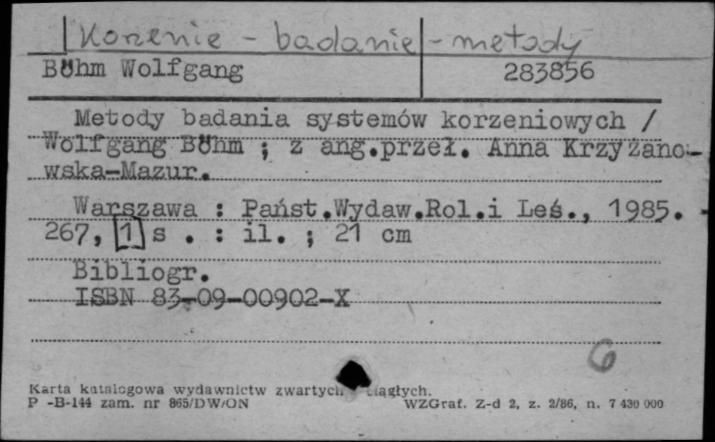 Korzenie - badanie - metody
Böhm Wolfgang 283856
Metody badania systemów korzeniowych /
Wolfgang Böhm ; z ang.przeł. Anna Krzyżano-
wska-Mazur.
Warszawa : Państ.Wydaw.Rol.i Leś., 1985. -
267, [1] s . : il. ; 21 cm
Bibliogr.
ISBN 83-09-00902-X
6
Karta katalogowa wydawnictw zwartych ciągłych.
P -B-144 zam. nr 865/DW/ON WZGraf. Z-d 2, z. 2/86, n. 7 430 000